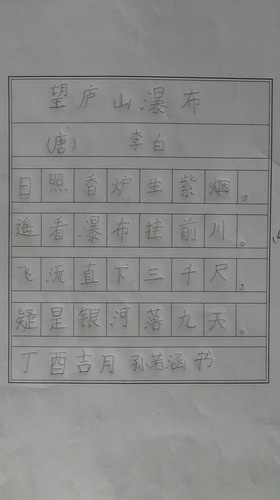 望庐山瀑布
(唐) 李白
日照香炉生紫烟。
遥看瀑布挂前川。
飞流直下三千尺,
疑是银河落九天。
丁酉吉月 孙若涵书